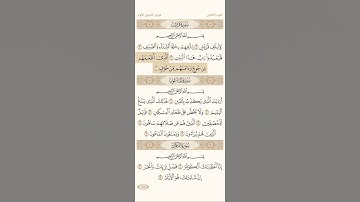 الجزء الثلاثون
سورة قريش
بِسْمِ اللَّهِ الرَّحْمَٰنِ الرَّحِيمِ
لِإِيلَافِ قُرَيْشٍ ١ إِيلَافِهِمْ رِحْلَةَ الشِّتَاءِ وَالصَّيْفِ ٢
فَلْيَعْبُدُوا رَبَّ هَٰذَا الْبَيْتِ ٣ الَّذِي أَطْعَمَهُم
مِّن جُوعٍ وَآمَنَهُم مِّنْ خَوْفٍ ٤
سورة الماعون
بِسْمِ اللَّهِ الرَّحْمَٰنِ الرَّحِيمِ
أَرَأَيْتَ الَّذِي يُكَذِّبُ بِالدِّينِ ١ فَذَٰلِكَ الَّذِي يَدُعُّ
الْيَتِيمَ ٢ وَلَا يَحُضُّ عَلَىٰ طَعَامِ الْمِسْكِينِ ٣ فَوَيْلٌ
لِّلْمُصَلِّينَ ٤ الَّذِينَ هُمْ عَن صَلَاتِهِمْ سَاهُونَ ٥
الَّذِينَ هُمْ يُرَاءُونَ ٦ وَيَمْنَعُونَ الْمَاعُونَ ٧
سورة الكوثر
بِسْمِ اللَّهِ الرَّحْمَٰنِ الرَّحِيمِ
إِنَّا أَعْطَيْنَاكَ الْكَوْثَرَ ١ فَصَلِّ لِرَبِّكَ وَانْحَرْ ٢
إِنَّ شَانِئَكَ هُوَ الْأَبْتَرُ ٣